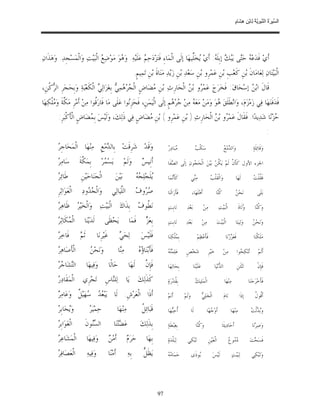 السِّيرَةُ النَّبَوِيَّةُ لِابْنِ هِشَامٍ
أَيْ فَدَعْهُ حَتَّى يَبُكَّ إبِلَهُ أَيْ يُخَلِّيهَا إلَى الْمَاءِ فَتَزْدَحِمُ عَلَيْهِ وَهُوَ مَوْضِعُ الْبَيْتِ وَالْمَسْجِدِ وَهَذَانِ
الْبَيْتَانِ لِعَامَانَ بْنِ كَعْبِ بْنِ عَمْرِو بْنِ سَعْدِ بْنِ زَيْدِ مَنَاةَ بْنِ تَمِيمٍ
قَالَ ابْنُ إسْحَاقَ: فَخَرَجَ عَمْرُو بْنُ الْحَارِثِ بْنِ مُضَاضٍ الْجُرْهُمِيُّ بِغَزَالَيْ الْكَعْبَةِ وَبِحَجَرِ الرُّكْنِ،
فَدَفَنَهَا فِي زَمْزَمَ، وَانْطَلَقَ هُوَ وَمَنْ مَعَهُ مِنْ جُرْهُمٍ إلَى الْيَمَنِ، فَحَزِنُوا عَلَى مَا فَارَقُوا مِنْ أَمْرِ مَكَّةَ وَمُلْكِهَا
حُزْنًا شَدِيدًا. فَقَالَ عَمْرُو بْنُ الْحَارِثِ ( بْنِ عَمْرِو ) بْنِ مُضَاضٍ فِي ذَلِكَ، وَلَيْسَ بِمُضَاضٍ الْأَكْبَرِ
وَقَائِلَةٍ وَالدَّمْعُ سَكْبٌ مُبَادِرُ وَقَدْ شَرِقَتْ بِالدَّمْعِ مِنْهَا الْمَحَاجِرُ
الجزء الأول كَأَنْ لَمْ يَكُنْ بَيْنَ الْحَجُونِ إلَى الصَّفَا أَنِيسٌ وَلَمْ يَسْمُرْ بِمَكَّةَ سَامِرُ
فَقُلْتُ لَهَا وَالْقَلْبُ مِنِّي كَأَنَّمَا يُلَجْلِجُهُ بَيْنَ الْجَنَاحَيْنِ طَائِرُ
بَلَى نَحْنُ كُنَّا أَهْلَهَا، فَأَزَالَنَا صُرُوفُ اللَّيَالِي وَالْجُدُودُ الْعَوَاثِرُ
وَكُنَّا وُلَاةَ الْبَيْتِ مِنْ بَعْدِ نَابِتٍ نَطُوفُ بِذَاكَ الْبَيْتِ وَالْخَيْرُ ظَاهِرُ
وَنَحْنُ وَلِينَا الْبَيْتَ مِنْ بَعْدِ نَابِتٍ بِعِزٍّ فَمَا يَحْظَى لَدَيْنَا الْمُكَاثِرُ
مَلَكْنَا فَعَزَّزْنَا فَأَعْظِمْ بِمُلْكِنَا فَلَيْسَ لِحَيٍّ غَيْرِنَا ثَمَّ فَاخِرُ
أَلَمْ تُنْكِحُوا مِنْ خَيْرِ شَخْصٍ عَلِمْتُهُ فَأَبْنَاؤُهُ مِنَّا وَنَحْنُ الْأَصَاهِرُ
فَإِنْ تَنْثَنِ الدُّنْيَا عَلَيْنَا بِحَالِهَا فَإِنَّ لَهَا حَالًا وَفِيهَا التَّشَاجُرُ
فَأَخْرَجَنَا مِنْهَا الْمَلِيكُ بِقُدْرَةٍ كَذَلِكَ يَا لِلنَّاسِ تَجْرِي الْمَقَادِرُ
أَقُولُ إذَا نَامَ الْخَلِيُّ وَلَمْ أَنَمْ أَذَا الْعَرْشِ لَا يَبْعُدُ سُهَيْلٌ وَعَامِرُ
وَبُدِّلْتُ مِنْهَا أَوْجُهًا لَا أُحِبُّهَا قَبَائِلُ مِنْهَا حِمْيَرٌ وَيُحَابِرُ
وَصِرْنَا أَحَادِيثًا وَكُنَّا بِغِبْطَةٍ بِذَلِكَ عَضَّتْنَا السُّنُونَ الْغَوَابِرُ
فَسَحَّتْ دُمُوعُ الْعَيْنِ تَبْكِي لِبَلْدَةٍ بِهَا حَرَمٌ أَمْنٌ وَفِيهَا الْمَشَاعِرُ
وَتَبْكِي لِبَيْتٍ لَيْسَ يُوذَى حَمَامُهُ يَظَلُّ بِهِ أَمْنًا وَفِيهِ الْعَصَافِرُ
97